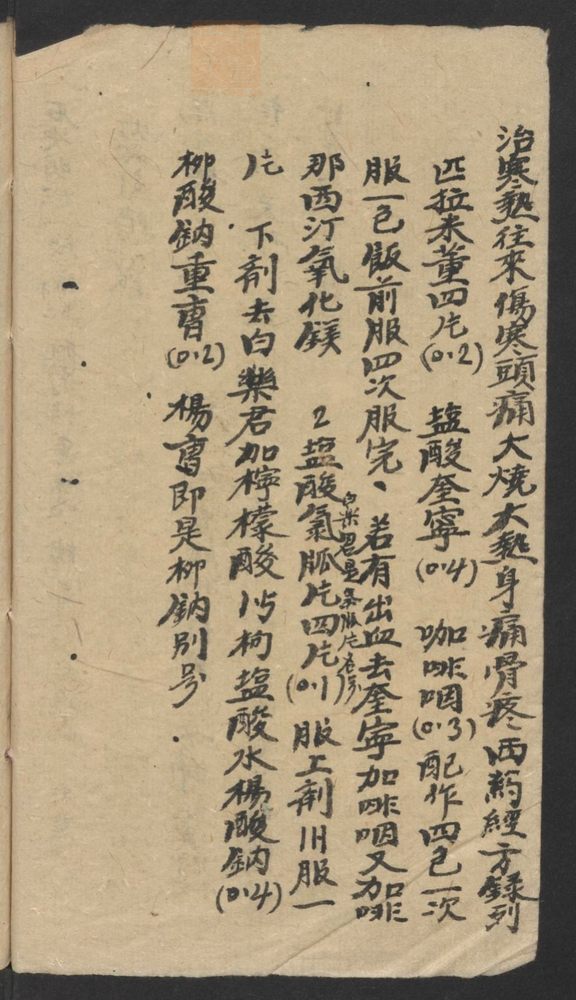 治寒熱往來傷寒頭痛大燒大熱身痛骨疼西药經方錄列
匹拉米董四片(0.2) 盐酸奎寧(0.4) 咖啡啁(0.3)配作四包一次
服一包飯前服四次服完、若有出血去奎寧加啡啁又加啡
那西汀氧化鎂 2盐酸氯胍片四片(0.1)服上剤〣服一
白楽君是氯胍片名号
片 下剤去白樂君加檸檬酸〡〥枸盐酸水楊酸鈉(0.4)
柳酸鈉重曹(0.2) 楊曹即是柳鈉別号